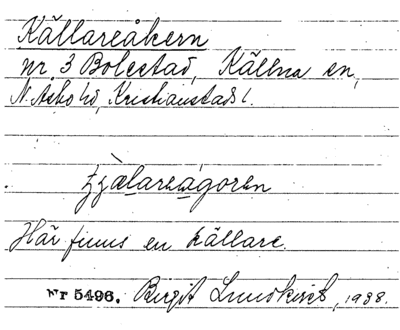 Källareåkern
nr. 3 Bolestad, Källna sn,
N. Åsbo hd, Kristianstads l.
Här finns en källare.
Nr 5496. Birgit Lundkvist, 1938.